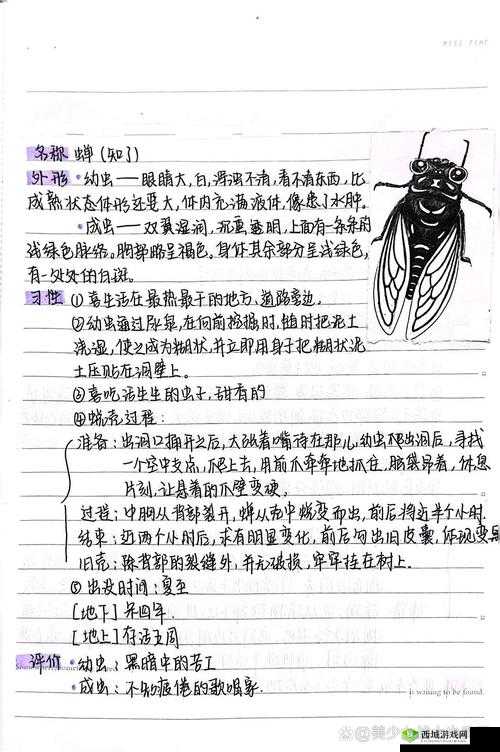 MISS FINT
名称 蝉（知了）
外形 • 幼虫——眼睛大，白，浑浊不清，看不清东西，比
成熟状态体形还要大，体内充满液体，像患了水肿。
• 成虫——双翼湿润，沉重透明，上面有一条条的
浅绿色脉络。胸部略呈褐色，身体其余部分呈浅绿色，
有一处处的白斑。
习性 ①喜生活在最热最干的地方、道路旁边。
②幼虫通过尿泉，在向前挖掘时，随时把泥土
浇湿，使之成为糊状，并立即用身子把糊状泥
土压贴在洞壁上。
③喜吃活生生的虫子，甜香的
④蜕壳过程：
准备：出洞口捅开之后，大张着嘴待在那儿，幼虫爬出洞后，寻找
一个空中支点，爬上去，用前爪牢牢地抓住，脑袋昂着，休息
片刻，让悬着的爪壁变硬。
过程：中胸从背部裂开，蝉从壳中蜕变而出，前后将近半个小时.
结束：近两个小时后，求有明显变化，前后钩出旧皮囊，体现变
旧壳：除背部的裂缝外，并无破损，牢牢挂在树上.
⑤出没时间：夏至
[地下] 呆四年.
[地上] 存活五周
评价 • 幼虫：黑暗中的苦工
• 成虫：不知疲倦的歌唱家.
is waiting to be found.
@美少
西城游戏网